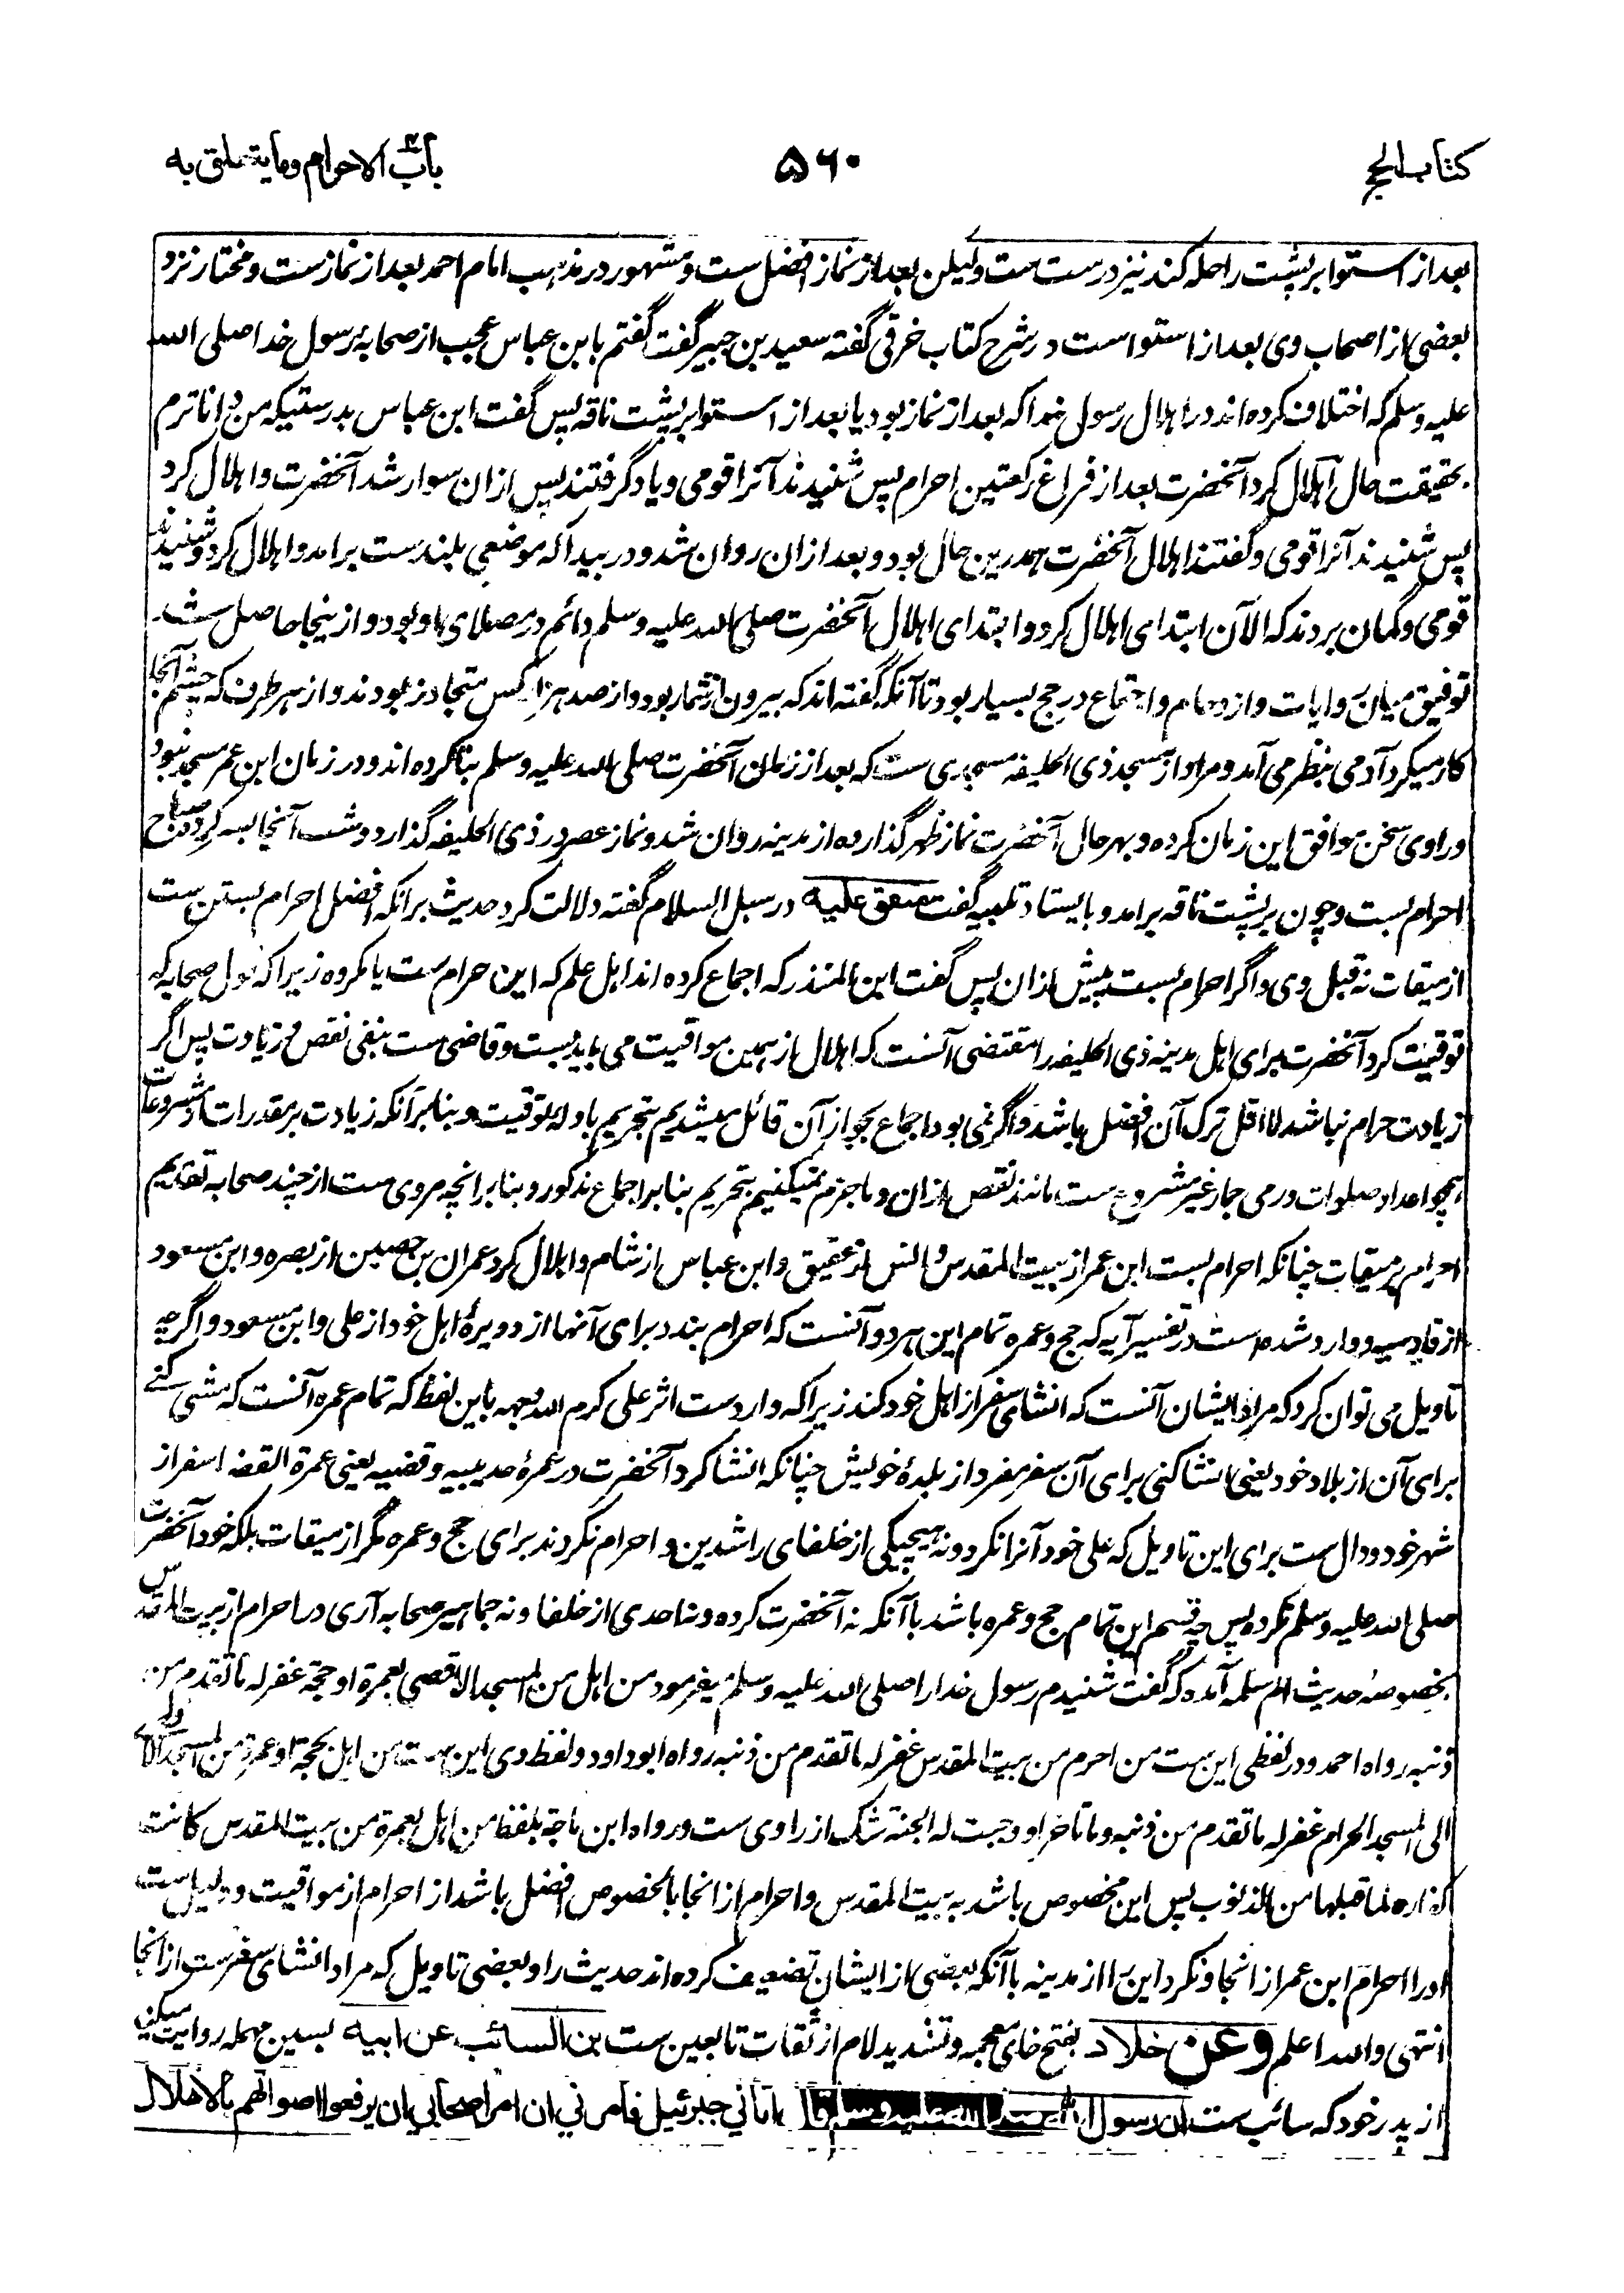 کتاب الحج
۵۶۰
باب الاحرام وما یتعلق به
بعد از استوا بر پشت راحله کند نیز درست ست ولیکن بعد از نماز افضل ست و مشهور در مذهب امام احمد بعد از نمازست و مختار نزد
بعضی از اصحاب وی بعد از استوا ست در شرح کتاب خرقی گفته سعید بن جبیر گفت گفتم بابن عباس عجب از صحابهٔ رسول خدا صلی الله
علیه وسلم که اختلاف کرده اند در اهلال رسول خدا که بعد از نماز بود یا بعد از استوا بر پشت ناقه پس گفت ابن عباس بدرستیکه من داناترم
بحقیقت حال اهلال کرد آنحضرت بعد از فراغ رکعتین احرام پس شنیدند آنرا قومی و یاد گرفتند پس ازان سوار شد آنحضرت و اهلال کرد
پس شنیدند آنرا قومی و گفتند اهلال آنحضرت همدرین حال بود و بعد ازان روان شد و در بیدا که موضعی بلند ست برامد و اهلال کرد و شنیدند
قومی و گمان بردند که الآن ابتدای اهلال کرد و ابتدای اهلال آنحضرت صلی الله علیه وسلم دائم در مصلای او بود و ازینجا حاصل شد
توفیق میان روایات و ازدحام و اجتماع در حج بسیار بود تا آنکه گفته اند که بیرون از شمار بود و از صد هزار کس متجاوز بودند و از هر طرف که چشم آنجا
کار میکرد آدمی بنظر می آمد و مراد از مسجد ذی الحلیفه مسجدی ست که بعد از زمان آنحضرت صلی الله علیه وسلم بنا کرده اند و در زمان ابن عمر مسجد نبود
و راوی سخن موافق این زمان کرده و بهر حال آنحضرت نماز ظهر گذارده از مدینه روان شد و نماز عصر در ذی الحلیفه گذارد و شب آنجا بسر کرد صباح
احرام بست و چون بر پشت ناقه برامد و بایستاد تلبیه گفت متفق علیه در سبل السلام گفته دلالت کرد حدیث برانکه افضل احرام بستن ست
از میقات نه قبل وی و اگر احرام بست پیش ازان پس گفت ابن المنذر که اجماع کرده اند اهل علم که این حرام ست یا مکروه زیرا که قول صحابه که
توقیت کرد آنحضرت برای اهل مدینه ذی الحلیفه را مقتضی آنست که اهلال از همین مواقیت می باید بست و قاضی ست بنفی نقص و زیادت پس اگر
زیادت حرام نباشد لا اقل ترک آن افضل باشد و اگر نمی بود اجماع بجواز آن قائل میشدیم بتحریم بادلهٔ توقیت و بنابر آنکه زیادت بر مقدرات از مشروعات
همچو اعداد صلوات و رمی جمار غیر مشروع ست مانند نقص ازان و ما جزم نمیکنیم بتحریم بنا بر اجماع مذکور و بنا برانچه مروی ست از چند صحابه تقدیم
احرام بر میقات چنانکه احرام بست ابن عمر از بیت المقدس و انس از عقیق و ابن عباس از شام و اهلال کرد عمران بن حصین از بصره و ابن مسعود
از قادسیه و وارد شده است در تفسیر آیه که حج و عمره تمام این هر دو آنست که احرام بندد برای آنها از دویرهٔ اهل خود از علی و ابن مسعود و اگرچه
تاویل می توان کرد که مراد ایشان آنست که انشای سفر از اهل خود کند زیرا که وارد ست اثر علی کرم الله وجهه باین لفظ که تمام عمره آنست که منشی کنی
برای آن از بلاد خود یعنی انشا کنی برای آن سفر مفرد از بلدهٔ خویش چنانکه انشا کرد آنحضرت در عمرهٔ حدیبیه و قضیه یعنی عمرة القضا سفر از
شهر خود و دال ست برای این تاویل که علی خود آنرا نکرد و نه هیچیکی از خلفای راشدین و احرام نکردند برای حج و عمره مگر از میقات بلکه خود آنحضرت
صلی الله علیه وسلم نکرده پس چه قسم این تمام حج و عمره باشد با آنکه نه آنحضرت کرده و نه احدی از خلفا و نه جماهیر صحابه آری در احرام از بیت المقدس
بخصوصه حدیث ام سلمه آمده که گفت شنیدم رسول خدا را صلی الله علیه وسلم میفرمود من اهل من المسجد الاقصی بعمرة او حجة غفر له ما تقدم من
ذنبه رواه احمد و در لفظی این ست من احرم من بیت المقدس غفر له ما تقدم من ذنبه رواه ابو داود و لفظ وی این ست من اهل بحجة او عمرة من المسجد الاقصی
الی المسجد الحرام غفر له ما تقدم من ذنبه وما تاخر او وجبت له الجنة شک از راوی ست و رواه ابن ماجة بلفظ من اهل بعمرة من بیت المقدس کانت
کفارة لما قبلها من الذنوب پس این مخصوص باشد به بیت المقدس و احرام از انجا بالخصوص افضل باشد از احرام از مواقیت و دلیل ست
اورا احرام ابن عمر از انجا و نکرد این را از مدینه با آنکه بعضی از ایشان تضعیف کرده اند حدیث را و بعضی تاویل که مراد انشای سفرست از انجا
انتهی والله اعلم وعن خلاد بفتح خای معجمه و تشدید لام از ثقات تابعین ست بن السائب عن ابیه بسین مهمله روایت میکند
از پدر خود که سائب ست ان رسول الله صلی الله علیه وسلم قال اتانی جبرئیل فامرنی ان امر اصحابی ان یرفعوا اصواتهم بالاهلال